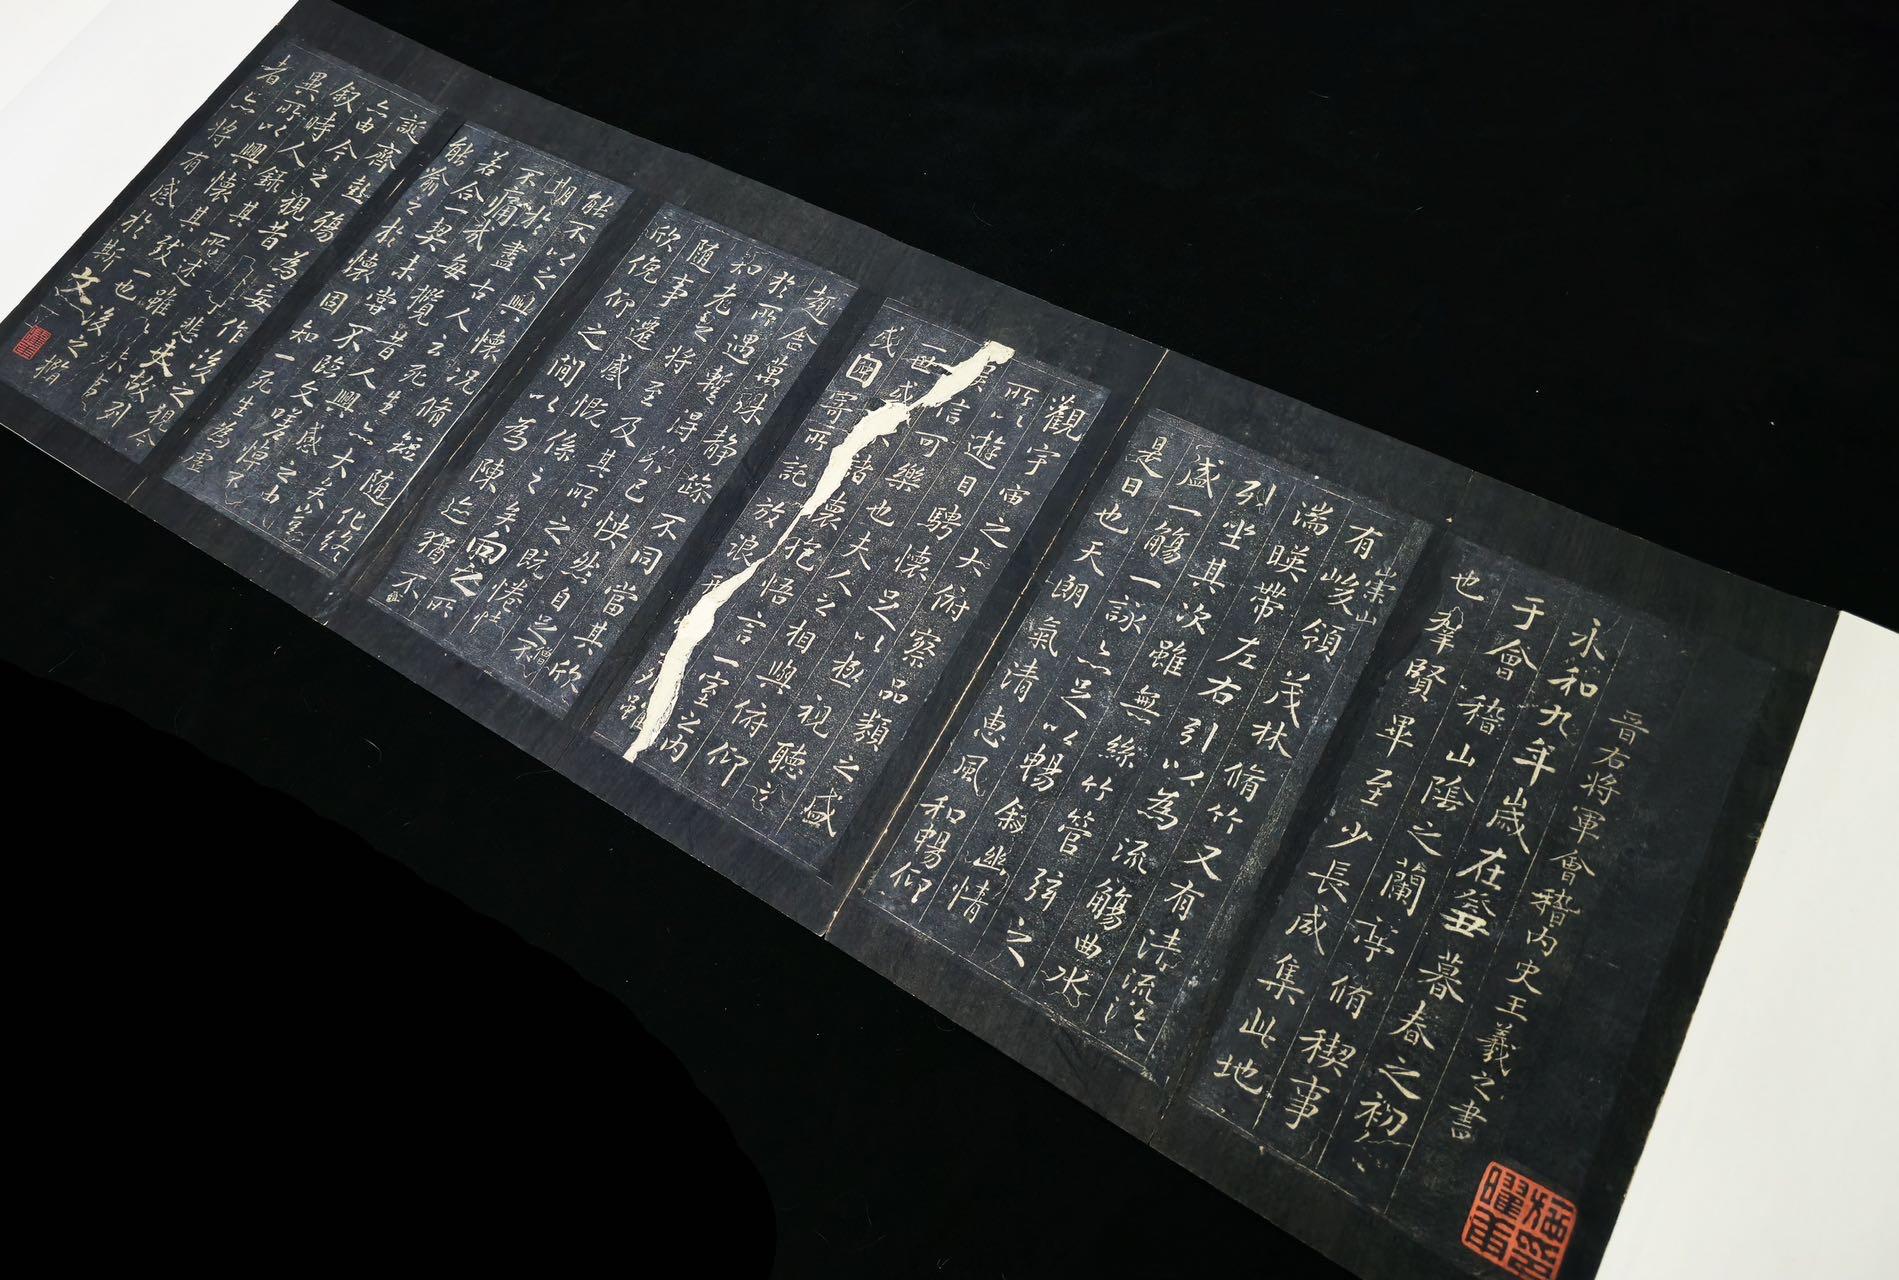 晉右將軍會稽內史王羲之書
永和九年歲在癸丑暮春之初
于會稽山陰之蘭亭脩稧事
也羣賢畢至少長咸集此地
有崇山峻領茂林脩竹又有清流激
湍暎帶左右引以為流觴曲水
列坐其次雖無絲竹管弦之
盛一觴一詠亦足以暢叙幽情
是日也天朗氣清惠風和暢仰
觀宇宙之大俯察品類之盛
所以遊目騁懷足以極視聽之
信可樂也夫人之相與俯仰
一世或諸懷抱悟言一室之內
或因寄所託放浪形外雖
趣舍萬殊静躁不同當其欣
於所遇暫得於己怏然自足不
知老之將至及其所之既惓情
隨事遷感慨係之矣向之所
欣俛仰之間以為陳迹猶不
能不以之興懷況脩短隨化終
期於盡古人云死生亦大矣豈
不痛哉每攬昔人興感之由
若合一契未嘗不臨文嗟悼不
能喻之於懷固知一死生為虛
誕齊彭殤為妄作後之視今
亦由今之視昔悲夫故列
叙時人錄其所述雖世殊事
異所以興懷其致一也後之攬
者亦將有感於斯文